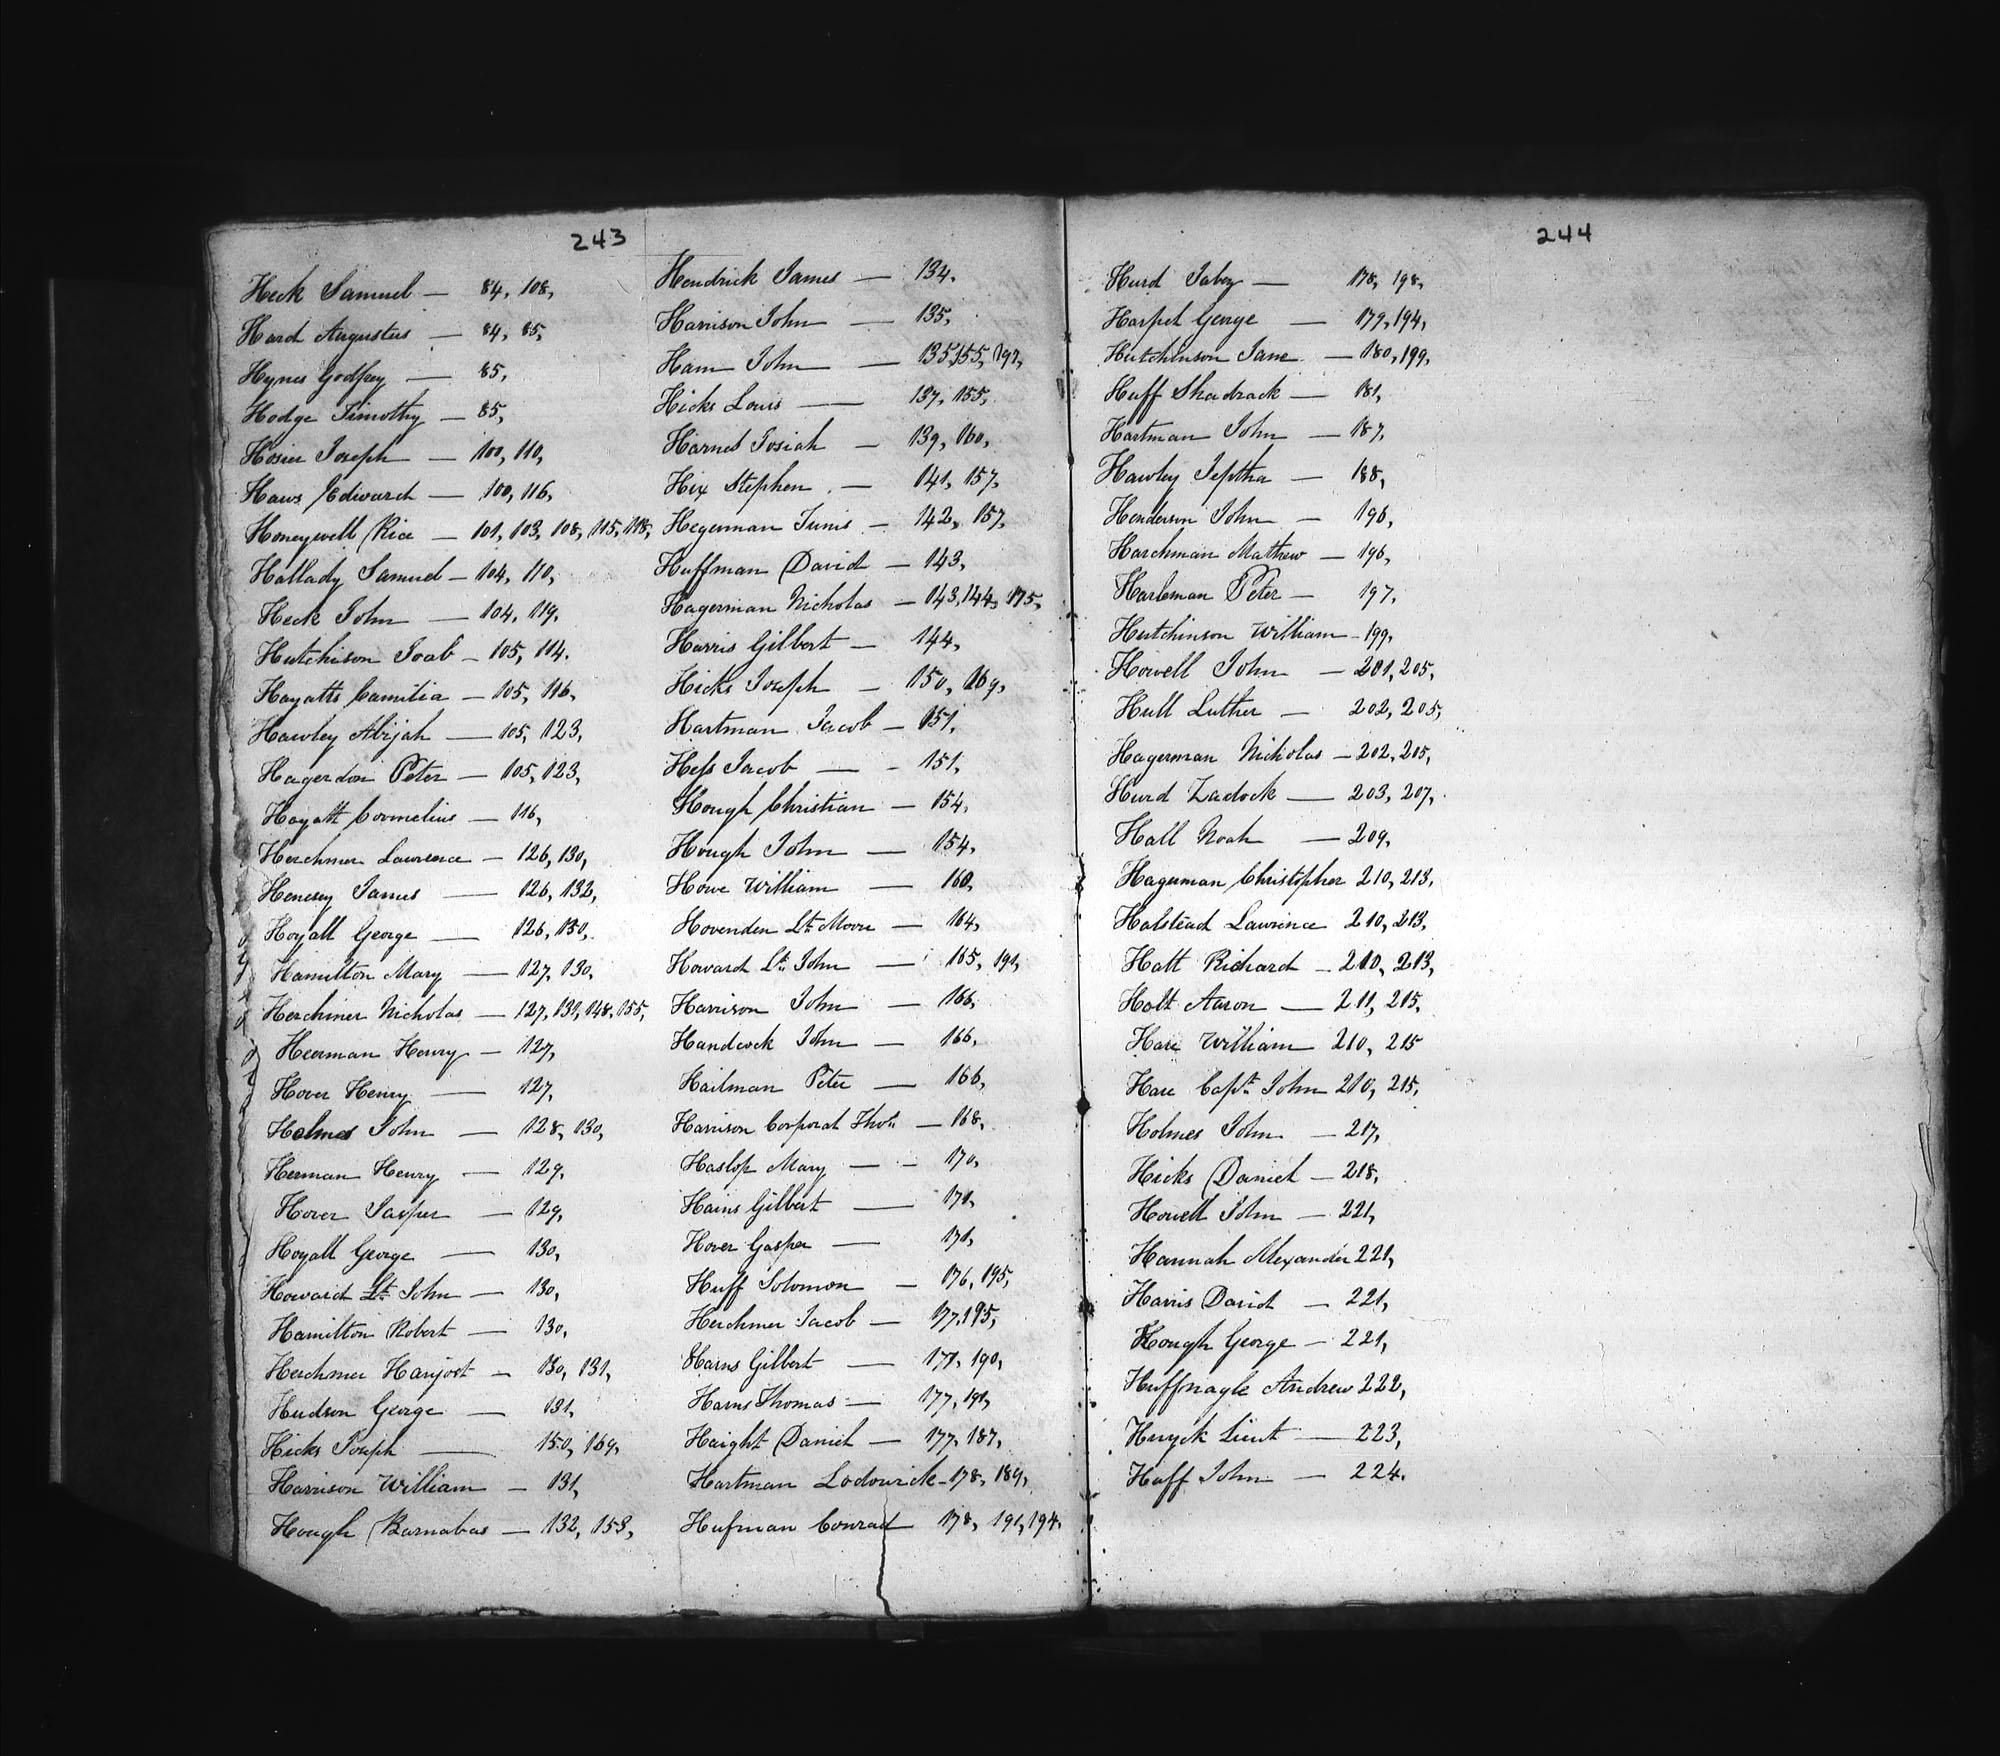 243
Heck Samuel — 84, 108,
Hard Augustus — 84, 85,
Hynes Godfrey — 85,
Hodge Timothy — 85,
Hosier Joseph — 100, 110,
Haws Edward — 100, 116,
Honeywell Rice — 101, 103, 108, 115, 118,
Hallady Samuel — 104, 110,
Heck John — 104, 119,
Hutchison Joab — 105, 114.
Hayatts Camilia — 105, 116,
Hawley Abijah — 105, 123,
Hagerdon Peter — 105, 123,
Hayatt Cornnelius — 116,
Herchmer Lawrence — 126, 130,
Henesey James — 126, 132,
Hoyall George — 126, 130,
Hamilton Mary — 127, 130,
Herchmer Nicholas — 127, 131, 148, 155,
Heerman Henry — 127,
Hover Henry — 127,
Holmes John — 128, 130,
Herman Henry — 129,
Hover Jasper — 129,
Hoyall George — 130,
Howard Lt. John — 130,
Hamilton Robert — 130,
Herchmer Hanjost — 130, 131,
Hudson George — 131,
Hicks Joseph — 150, 169,
Harrison William — 131,
Hough Barnabas — 132, 153,
Hendrick James — 134.
Harrison John — 135,
Ham John — 135, 155, 197,
Hicks Louis — 137, 155,
Harned Josiah — 139, 160,
Hix Stephen — 141, 157,
Hegerman Tunis — 142, 157,
Huffman David — 143,
Hagerman Nicholas — 143, 144, 175,
Harris Gilbert — 144,
Hicks Joseph — 150, 169,
Hartman Jacob — 151,
Hess Jacob — 151,
Hough Christian — 154,
Hough John — 154,
Howe William — 160,
Hovenden Lt. Moore — 164,
Howard Lt. John — 165, 191,
Harrison John — 166,
Handcock John — 166,
Hailman Peter — 166,
Harrison Corporal Thos. — 168,
Haslop Mary — 170,
Hains Gilbert — 171,
Hover Gasper — 171,
Huff Solomon — 176, 195,
Herchmer Jacob — 177, 195,
Harns Gilbert — 177, 190,
Harns Thomas — 177, 191,
Haight Daniel — 177, 187,
Hartman Lodowick — 178, 189,
Hufman Conrad 178, 191, 194,
244
Hurd Jabez — 178, 198,
Harpel George — 179, 194,
Hutchinson Jane — 180, 199,
Huff Shadrack — 181,
Hartman John — 187,
Hawley Jeptha — 188,
Henderson John — 196,
Harchman Mathew — 196,
Harleman Peter — 197,
Hutchinson William — 199,
Howell John — 201, 205,
Hull Luther — 202, 205,
Hagerman Nicholas — 202, 205,
Hurd Zadock — 203, 207,
Hall Noah — 209,
Hagerman Christopher 210, 213,
Halstead Lawrence 210, 213,
Hatt Richard — 210, 213,
Holt Aaron — 211, 215,
Hare William 210, 215
Hare Capt. John 210, 215,
Holmes John — 217,
Hicks Daniel — 218,
Howell John — 221,
Hannah Alexander 221,
Harris David — 221,
Hough George — 221,
Huffnagle Andrew 222,
Huyck Lieut — 223,
Huff John — 224.